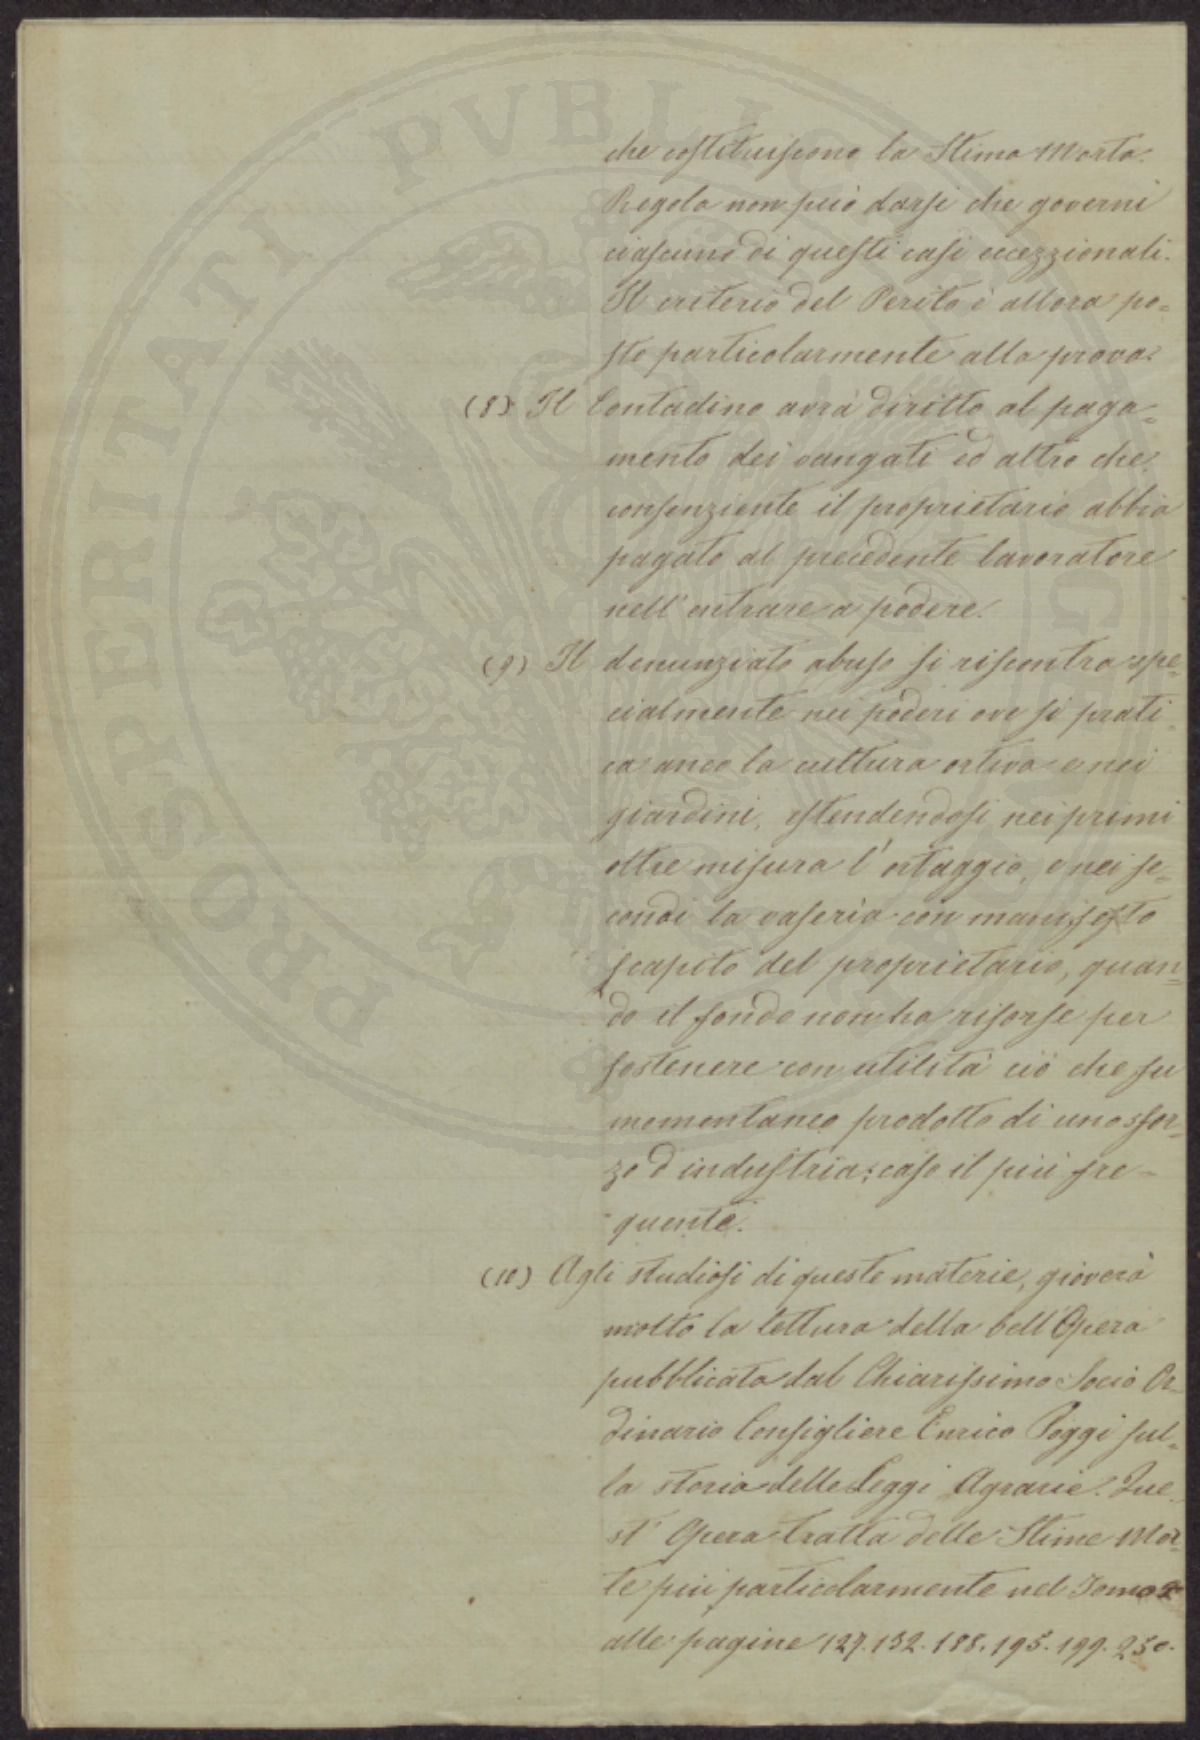 che costituiscono la Stima Morta.
Regola non può darsi che governi
ciascuno di questi casi eccezzionali.
Il criterio del Perito è allora po=
sto particolarmente alla prova.
(8) Il Contadino avrà diritto al paga=
mento dei vangati ed altro che
consenziente il proprietario abbia
pagato al precedente lavoratore
nell'entrare a podere.
(9) Il denunziato abuso si riscontra spe=
cialmente nei poderi ove si prati=
ca anco la cultura ortiva e nei
giardini, estendendosi nei primi
oltre misura l'ortaggio, e nei se=
condi la vaseria con manifesto
scapito del proprietario, quan=
do il fondo non ha risorse per
sostenere con utilità ciò che fu
momentaneo prodotto di uno sfor=
zo d'industria; caso il più fre=
quente.
(10) Agli studiosi di queste materie, gioverà
molto la lettura della bell'Opera
pubblicata dal Chiarissimo Socio Or=
dinario Consigliere Enrico Poggi sul=
la storia delle Leggi Agrarie. Que=
st' Opera tratta delle Stime Mor=
te più particolarmente nel Tomo 2
alle pagine 127. 132. 188. 195. 199. 250.
PROSPERITATI PVBLICAE